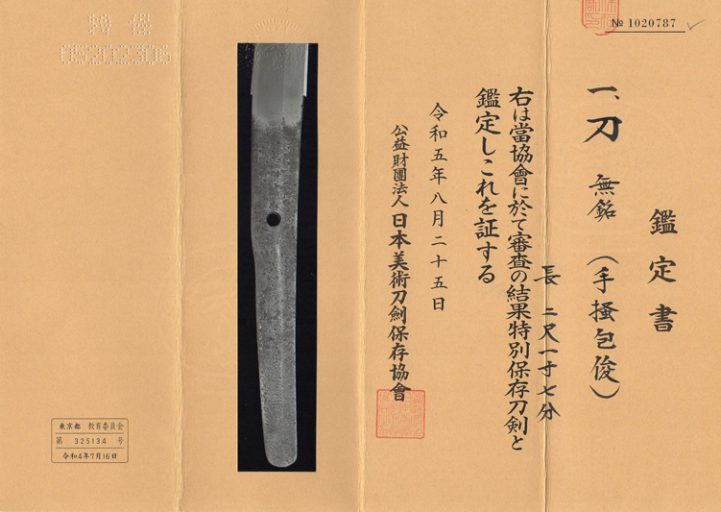 № 1020787
鑑定書
一、刀 無銘(手掻包俊)
長 二尺一寸七分
右は當協會に於て審査の結果特別保存刀剣と
鑑定しこれを証する
令和五年八月二十五日
公益財團法人 日本美術刀劍保存協會
東京都 教育委員会
第 325134 号
令和4年7月16日